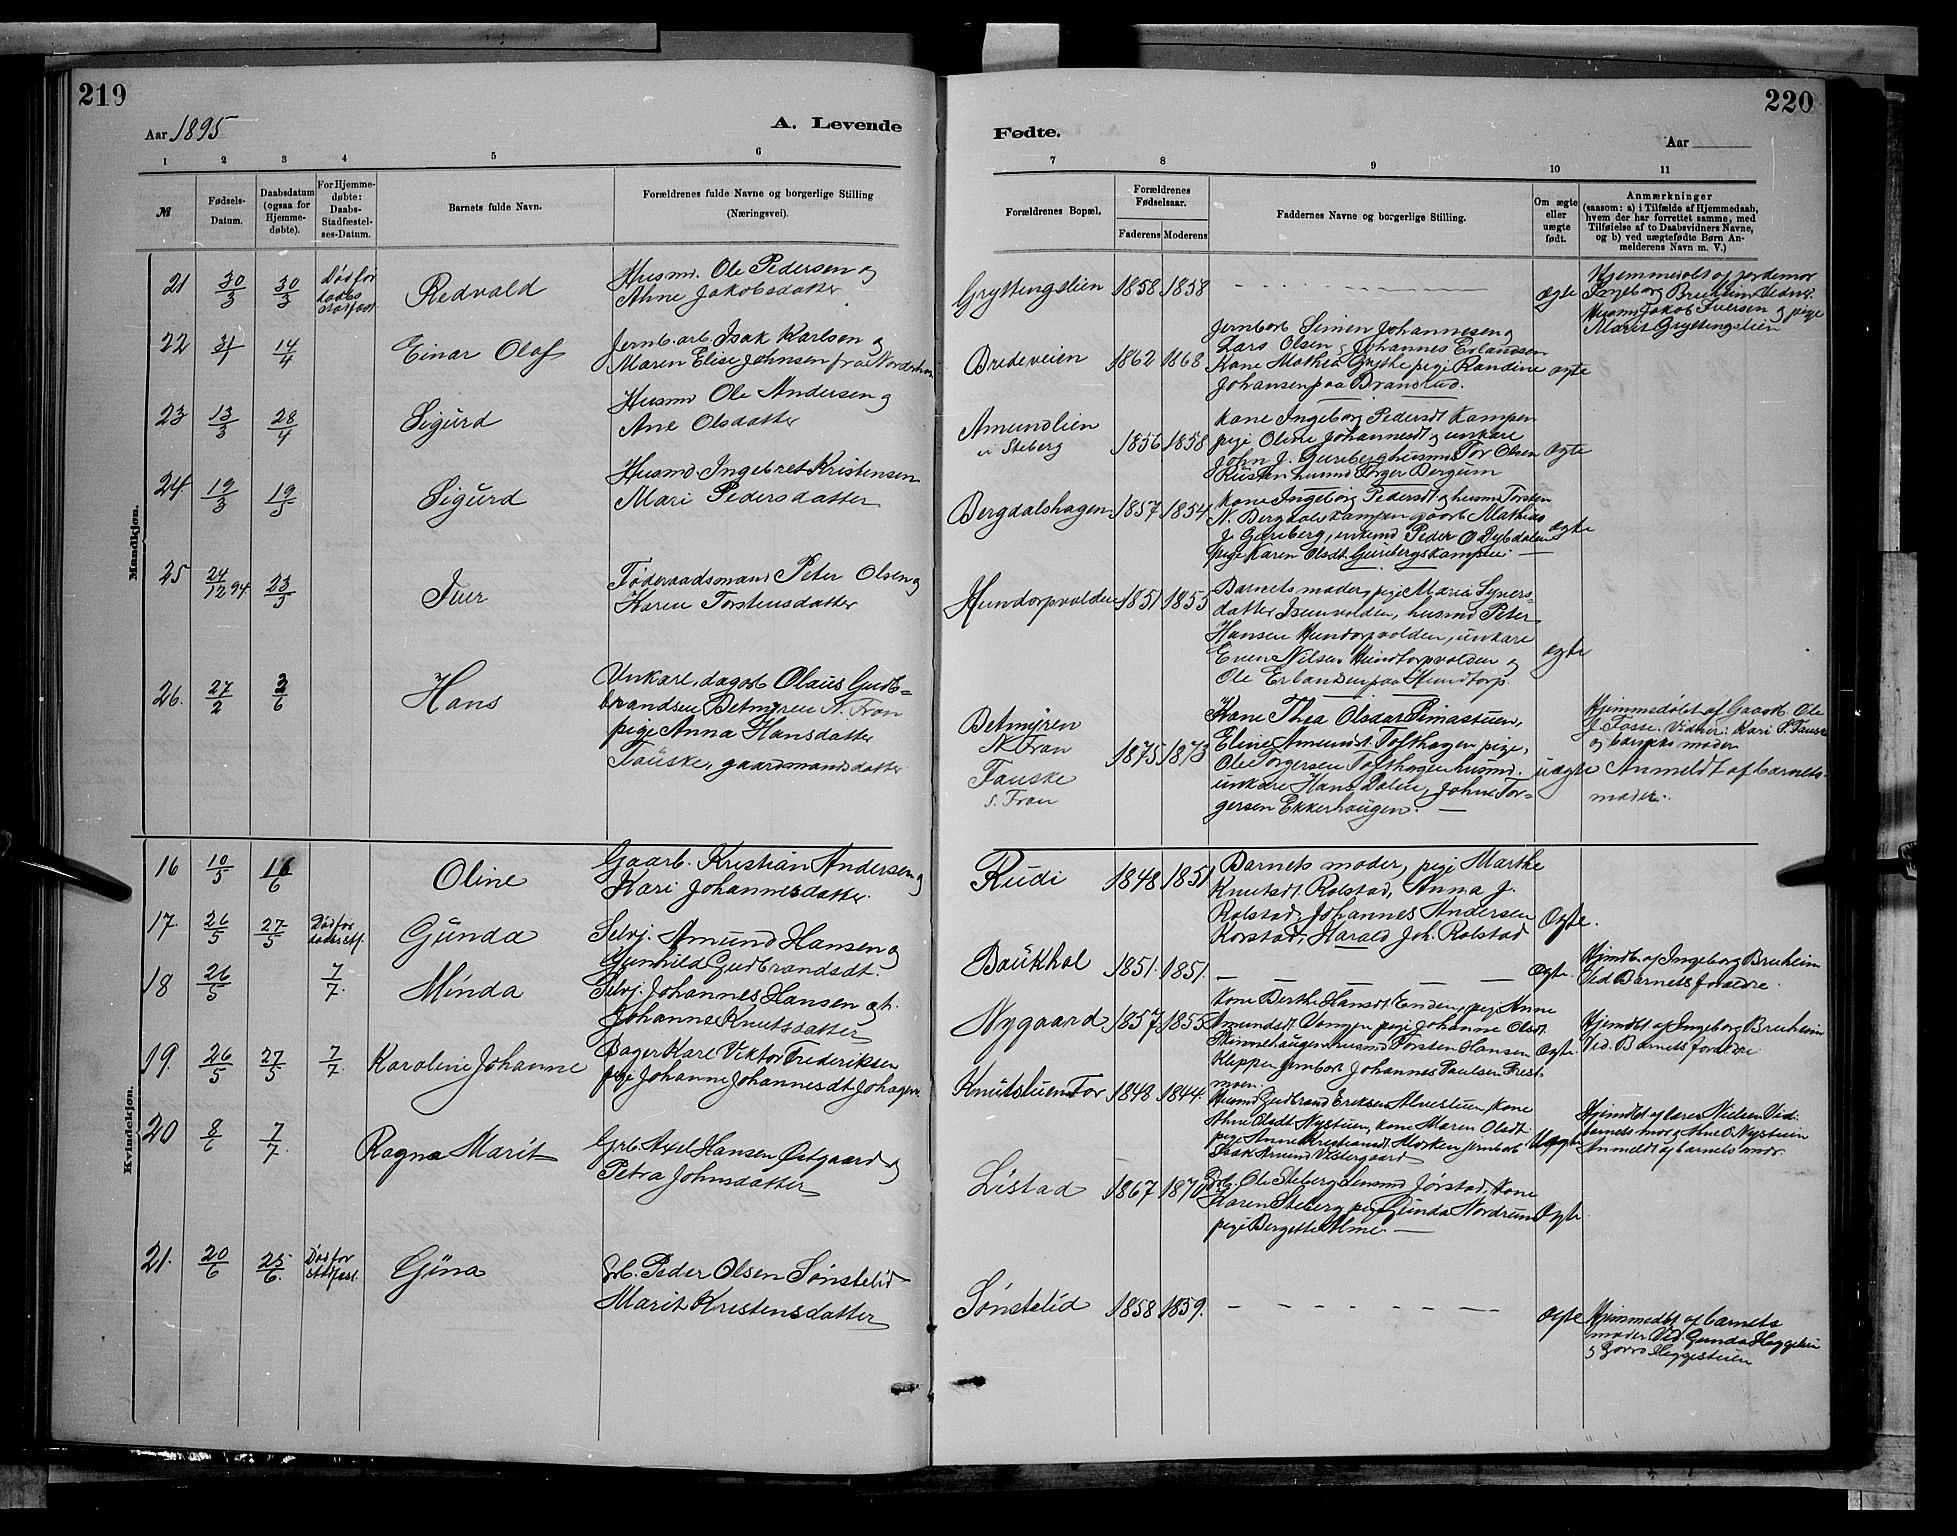 219
Aar 1895
A. Levende
1 2 3 4 5 6
№
Fødsels-
Datum.
Daabsdatum
(ogsaa for
Hjemme-
døbte).
For Hjemme-
døbte:
Daabs-
Stadfæstel-
ses-Datum.
Barnets fulde Navn.
Forældrenes fulde Navne og borgerlige Stilling
(Næringsvei).
Mandkjøn.
21 30/3 30/3 Død før
daabs
stadfæst
Redvald
Husmd. Ole Pedersen og
Ahne Jakobsdatter
22 31/1 14/4 Einar Olaf
Jernb.arb. Isak Karlsen og
Maren Elise Johnsen fra Norderhov
23 13/3 28/4 Sigurd
Husmd Ole Andersen og
Ane Olsdatter
24. 19/3 19/5 Sigurd
Husmd. Ingebret Kristensen
Mari Pedersdatter
25 24/12 94 23/5 Iver
Føderaadsmand Peter Olsen og
Karen Torstensdatter
26. 27/2 2/6 Hans
Unkare, dagarb Olaus Gudb-
brandsen Betmyren N. Fron
pige Anna Hansdatter
Fauske, gaardmandsdatter
Kvindekjøn.
16 10/5 16/6 Oline
Gaarb. Kristian Andersen og
Kari Johannesdatter.
17. 26/5 27/5 Død før
Gunda
Selvj. Amund Hansen og
Gunhild Gudbrandsdt.
18 26/5 7/7. Minda
Selvj. Johannes Hansen og h.
Johanne Knutsdatter
19. 26/5 27/5 7/7 Karoline Johanne
Bager Karl Viktor Frederiksen
pige Johanne Johannesdt
20 8/6 7/7. Ragna Marit
Grb. Axel Hansen Østgaard og
Petra Johnsdatter
21. 20/6 25/6. Død før
stadfæst.
Gina
Grb. Peder Olsen Sønstelid
Marit Kristensdatter
220
Fødte.
Aar
7 8 9 10 11
Forældrenes Bopæl.
Forældrenes
Fødselsaar.
Faderens Moderens
Faddernes Navne og borgerlige Stilling.
Om ægte
eller
uægte
født.
Anmærkninger
(saasom: a) i Tilfælde af Hjemmedaab,
hvem der har forrettet samme, med
Tilføielse af to Daabsvidners Navne,
og b) ved uægtefødte Børn An-
melderens Navn m. V.)
Gryttingslien 1858 1858 ægte
Hjemmedøbt af jordemor
Ingeborg Bruheim Vidner:
Husmd Jakob Iversen og pige
Marit Gryttingslien
Bredeveien 1862 1868
Jernbarb Simen Johannesen og
Lars Olsen og Johannes Erlandsen
Kone Mathea Grythe pige Randine
Johansen paa Brandrud.
ægte
Amundlien
i Steberg 1856 1858
Kone Ingeborg Pedersdt Kampen
pige Oline Johannesdt og unkare
John J. Gureberg husmd Tor Olsen
Rusten husmd Torger Bergum
ægte
Bergdalshagen 1857 1854
Kone Ingeborg Pedersdt og husmd Torsten
N. Bergdalskampen gaarb Mathias
J. Gureberg, enkemd Peder O Dybdalen
pige Karen Olsdt Gurebergskampen. —
ægte
Hundorpvolden 1851 1855
Barnets moder, pige Maria Syvers-
datter Isenvolden, husmd Peter
Hansen Hundorpvolden, unkare
Even Nilsen Hundtorpvolden og
Ole Erlandsen paa Hundtorp.
ægte
Betmyren
N. Fron
Fauske
S. Fron
1875 1873
Kone Thea Olsdat
Eline Amundst. Tofthagen pige,
Ole Torgersen Tofthagen husmd.
unkare Hans Dalen, John Tor-
gersen Ekkerhaugen. —
uægte
Hjemmedøbt af Gaarb. Ole
J. Fosse. Vidner: Kari S. Fauske
og barnets moder
Anmeldt af barnets
moder.
Rudi 1848 1851
Barnets moder, pige Marthe
Knutsdt Rolstad, Anna J.
Rolstad, Johannes Andersen
Korstad, Harald Joh. Rolstad
Ægte.
Baukhol 1851. 1851. ægte.
Hjmdbt. af Ingeborg Bruheim
Vid. Barnets forældre.
Nygaard 1857 1855
Kone Berthe Hansdt Enden, pige Anne
Amundsdt Vangen pige Johanne Olsdt
husmd Torsten Hansen
Kleppen jernbarb Johannes Paulsen Prest
moen.
Ægte.
Hjmdbt af Ingeborg Bruheim
Vid. Barnets forældre
Knutsluen Tor 1848 1844.
Husmd Gudbrand Eriksen Alvestuen, kone
Ahne Olsdt Nystuen, kone Maren Olsdt
pige Anne Kristiansdt Horken jernbarb
Isak Amund Vestergaard
Uægte
Hjmdbt. af lærer Nielsen Vid:
barnets mor og Ahne O. Nystuen
Anmeldt af barnets mor
Listad 1867 1870
Grb. Ole Steberg, Jørstad, kone
Karen Steberg pige Gunda Nordrum
pige Bergitte Alme. —
Ægte.
Sønstelid 1858 1859. ægte
Hjemmedbt af barnets
moder Vid. Gunda Heggelien